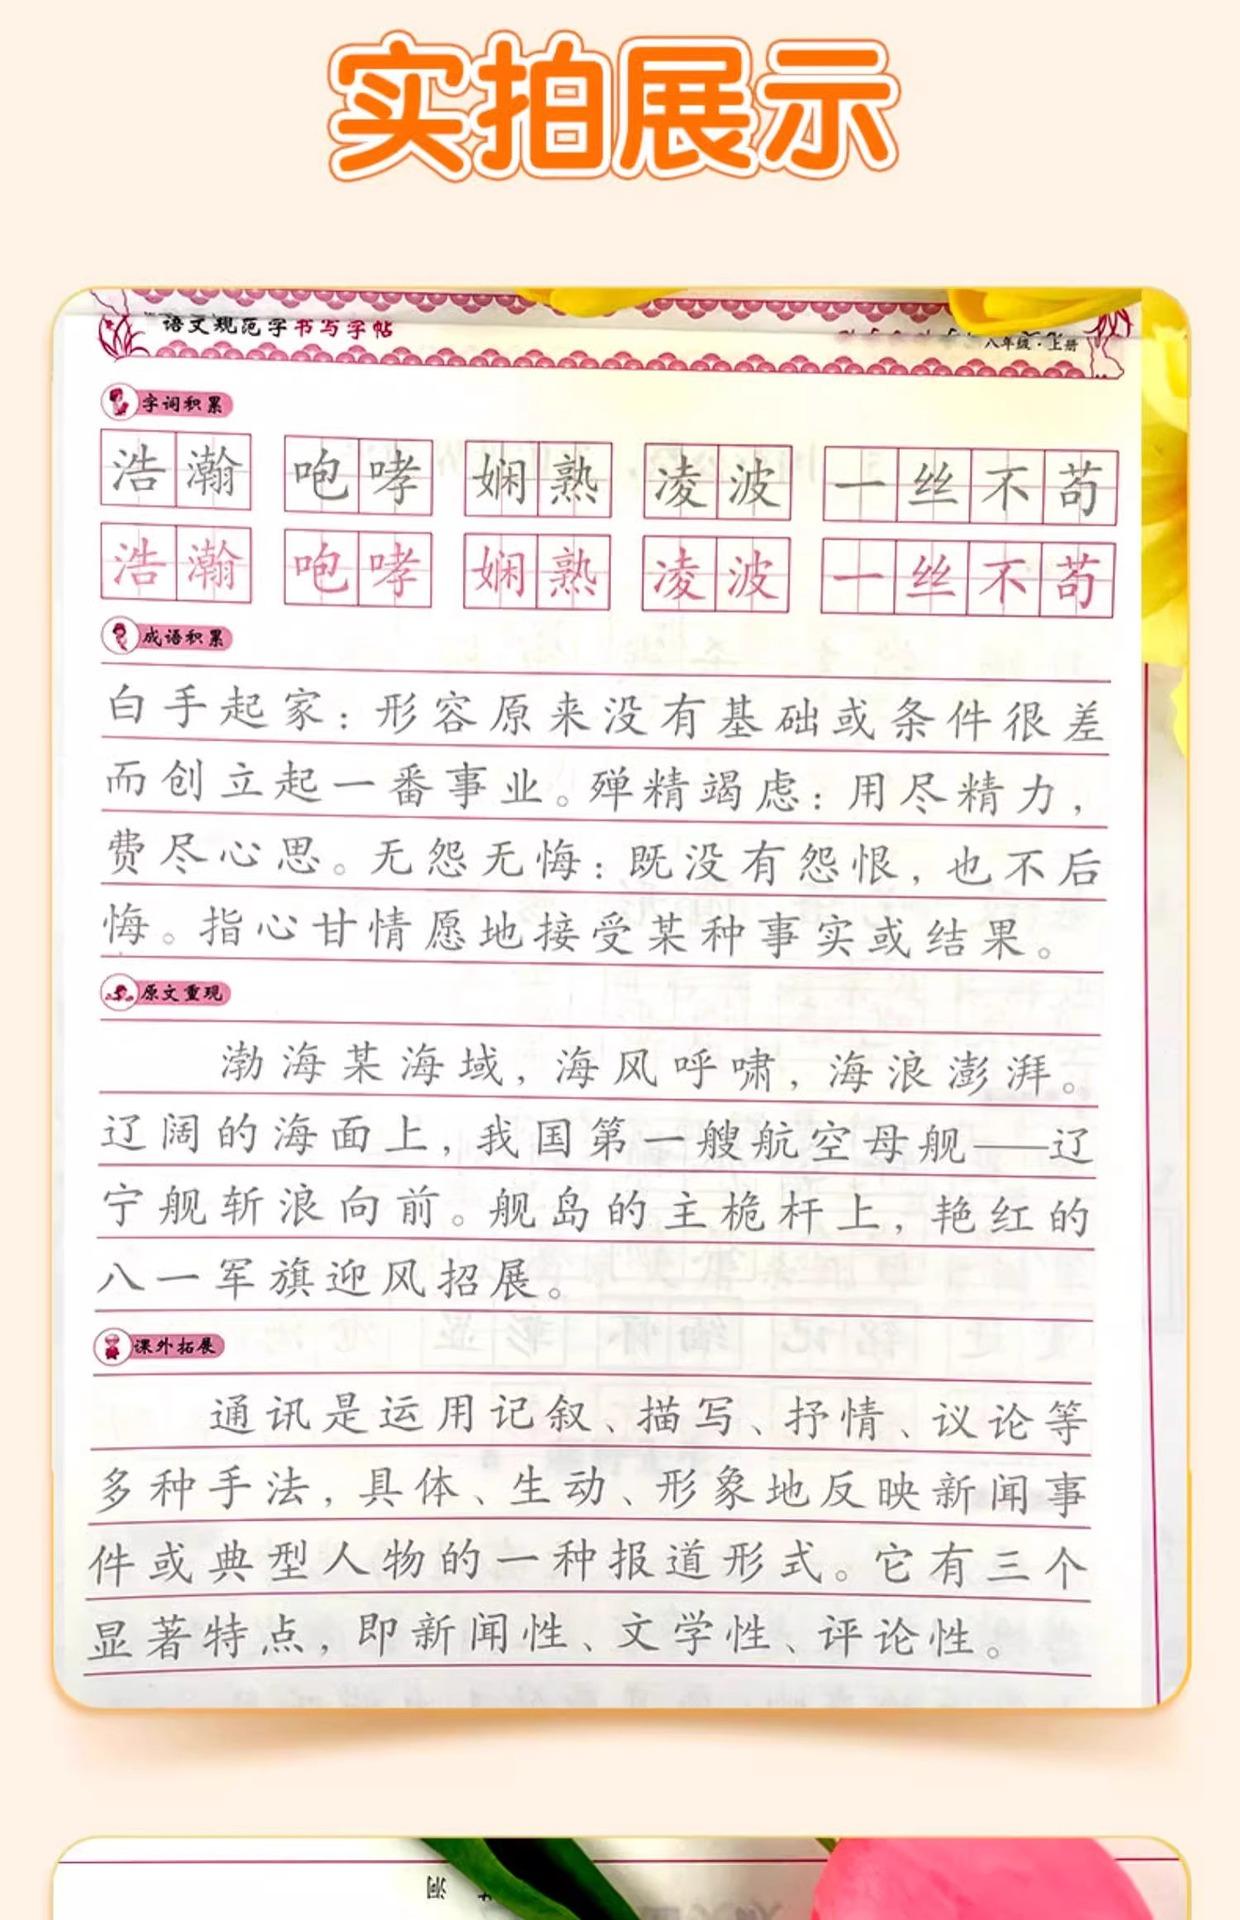 实拍展示
语文规范字书写字帖
八年级·上册
字词积累
浩瀚 咆哮 娴熟 凌波 一丝不苟
浩瀚 咆哮 娴熟 凌波 一丝不苟
成语积累
白手起家：形容原来没有基础或条件很差
而创立起一番事业。殚精竭虑：用尽精力，
费尽心思。无怨无悔：既没有怨恨，也不后
悔。指心甘情愿地接受某种事实或结果。
原文重现
渤海某海域，海风呼啸，海浪澎湃。
辽阔的海面上，我国第一艘航空母舰——辽
宁舰斩浪向前。舰岛的主桅杆上，艳红的
八一军旗迎风招展。
课外拓展
通讯是运用记叙、描写、抒情、议论等
多种手法，具体、生动、形象地反映新闻事
件或典型人物的一种报道形式。它有三个
显著特点，即新闻性、文学性、评论性。